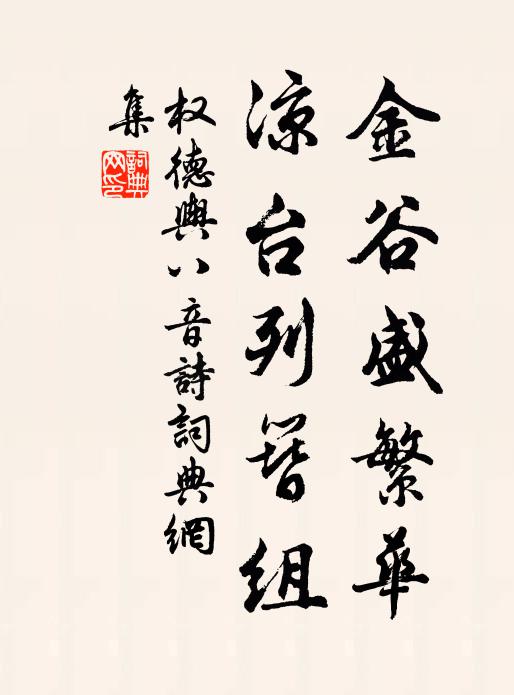 金谷盛繁華
涼台列簪組
权德輿八音詩詞典網
集
詞典網印